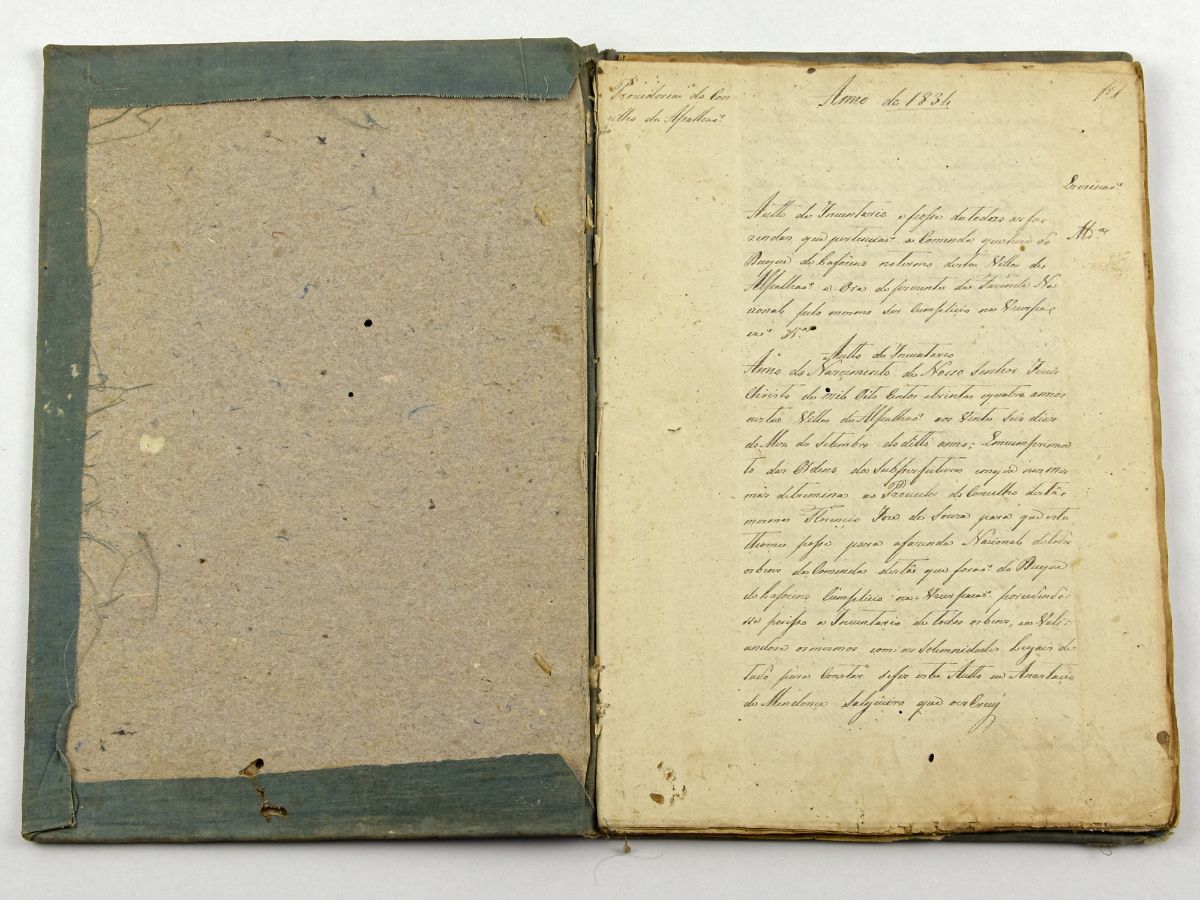 Provedorcaᵒ do Con-
celho de Alpalhaõ
Anno de 1834
fˢ 1
Escrivaõ
Autto de Inventario e posse de todas as fa-
zendas que pertenciaõ a Comenda que hera do
Mᵈᵃ
Duque de Cafoens no termo desta Villa de
Alpalhaõ e Ora de prezente da Fazenda Na-
cional pelo mesmo ser Cumplicio na Uzurpa-
caõ Vᵃ
Autto de Inventario
Anno do Nascimento de Nosso Senhor Jesus
Christo de mil Oito Centos etrinta equatro annos
nesta Villa de Alpalhaõ aos Vinte seis dias
do Mez de Setembro do ditto anno; Emcumprimen
to das Ordens da Subprefeitura em que nas mes
mas detremina ao Provedor do Concelho desta
mesma Florencio Joze de Souza para que este
thome posse para afazenda Nacional de todos
os bens da Comenda desta que foraõ do Duque
de Lafoens Cumplicio na Uzurpacaõ porcedendo-
se por isso a Inventario de todos os bens, ea Vali-
andose os mesmos com as Solemnidades Legais de
tudo para Constar se fes este Autto eu Anastacio
de Mendonca Salgueiro que o escrevy